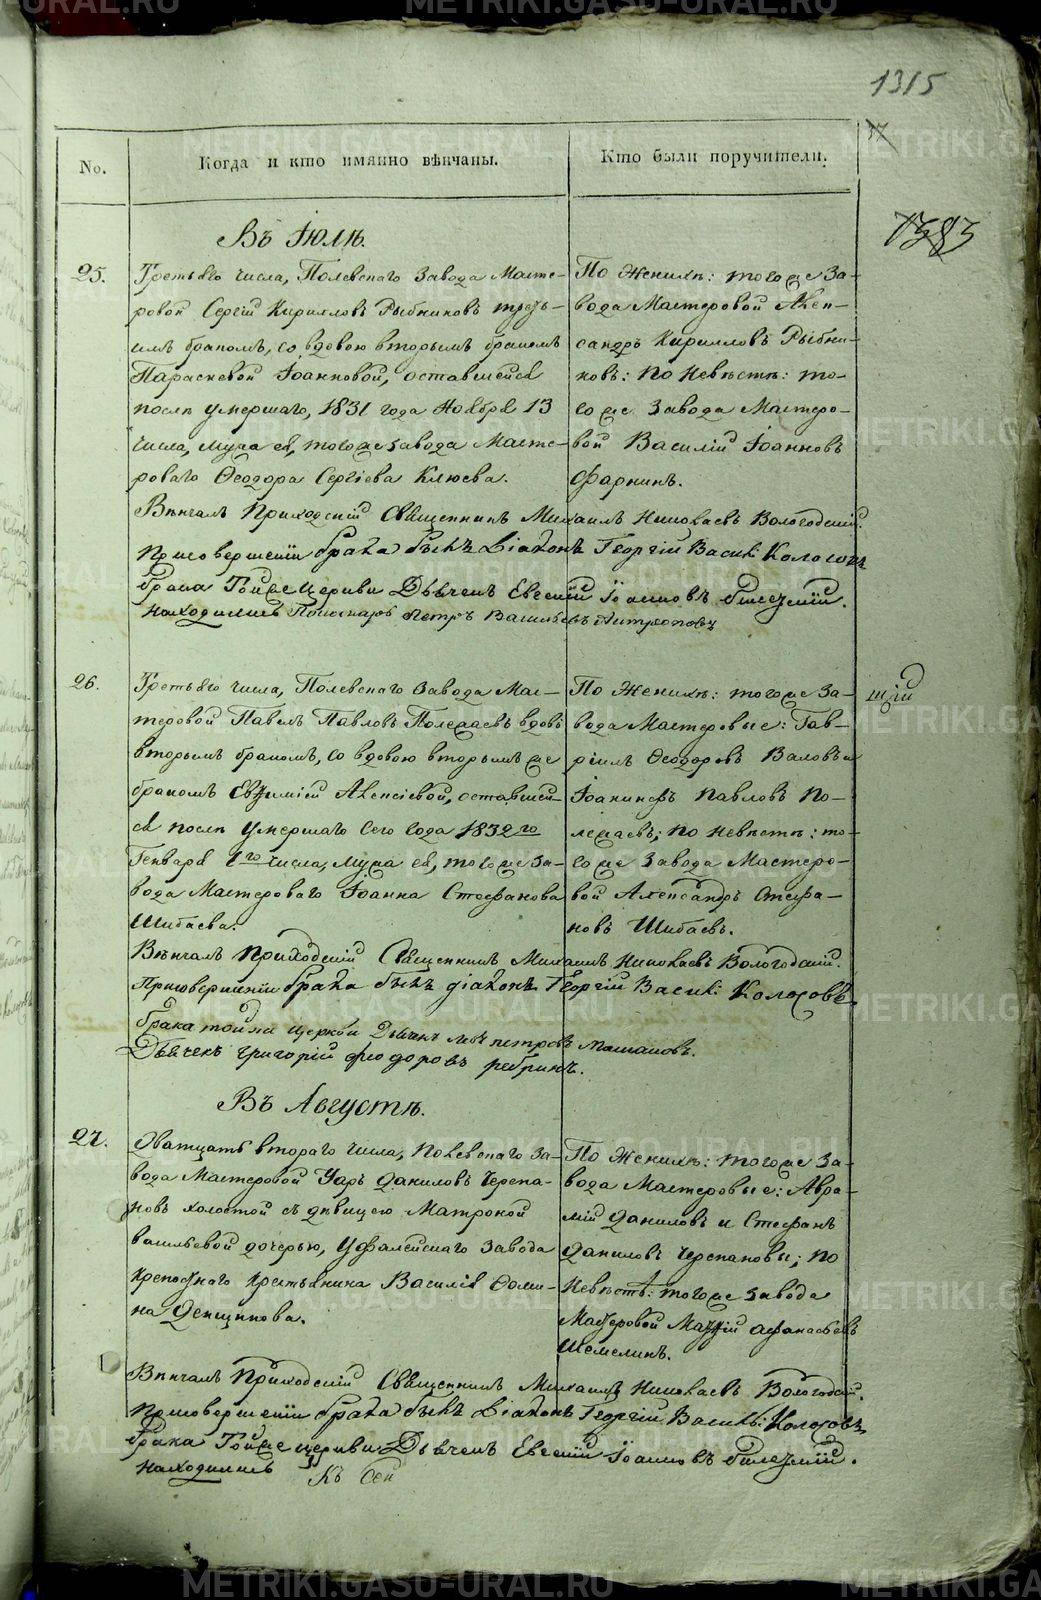 1315
37
1383
No.
Когда и кто имянно вѣнчаны.
Кто были поручители.
Въ Іюлѣ.
25.
Третьяго числа, Полевскаго Завода Масте-
ровой Сергій Кирилловъ Рыбниковъ треть-
имъ бракомъ, со вдовою вторымъ бракомъ
Параскевой Іоанновой, оставшейся
послѣ умершаго, 1831 года Ноября 13
числа, мужа ея, тогоже завода Масте-
роваго Ѳеодора Сергіева Клюева.
По Женихѣ: тогоже За-
вода Мастеровой Алек-
сандръ Кирилловъ Рыбни-
ковъ: По Невѣстѣ: то-
гоже Завода Мастеро-
вой Василій Іоанновъ
Фаркинъ.
Вѣнчалъ Приходскій Священникъ Михаилъ Николаевъ Вологодскій.
При совершеніи брака былъ Діаконъ Георгій Васил: Колосовъ
брака Тойже церкви Дьячекъ Евгеній Іоанновъ
находились Пономарь Петръ Васильевъ
26.
Третьяго числа, Полевскаго Завода Мас-
теровой Павелъ Павловъ Полежаевъ вдовъ
вторымъ бракомъ, со вдовою вторымъ же
бракомъ Евѳиміей Алексіевой, оставшей-
ся послѣ умершаго сего года 1832го
Генваря 1го числа, мужа ея, тогоже За-
вода Мастероваго Іоанна Стефанова
Шибаева.
По Женихѣ: тогоже За-
вода Мастеровые: Гав-
ріилъ Ѳеодоровъ Валовъ и
Іоанникъ Павловъ По-
лежаевъ; по невѣстѣ: то-
гоже Завода Мастеро-
вой Александръ Стефа-
новъ Шибаевъ.
щій
Вѣнчалъ Приходскій Священникъ Михаилъ Николаевъ Вологодскій.
При совершеніи брака былъ діаконъ Георгій Васил: Колосовъ
брака той же церкви Дьячекъ Левъ петровъ
Дьячекъ григорій феодоровъ ребринъ.
Въ Августѣ.
27.
Дватцать втораго числа, Полевскаго За-
вода Мастеровой Уаръ Даниловъ Черепа-
новъ холостой съ дѣвицею Матроной
васильевой дочерью, Уфалейскаго Завода
крепостного крестьянина Василія Ѳоми-
на Денщикова.
По Женихѣ: тогоже За-
вода Мастеровые: Авра-
мій Даниловъ и Стефанъ
Даниловъ Черепановы; по
Невѣстѣ: тогоже завода
Мастеровой Матѳій Афанасьевъ
Шемелинъ.
Вѣнчалъ Приходскій Священникъ Михаилъ Николаевъ Вологодскій.
При совершеніи брака былъ Діаконъ Георгій Василь: Колосовъ
брака Тойже церкви Дьячекъ Евгеній Іоанновъ
находились
Къ сей